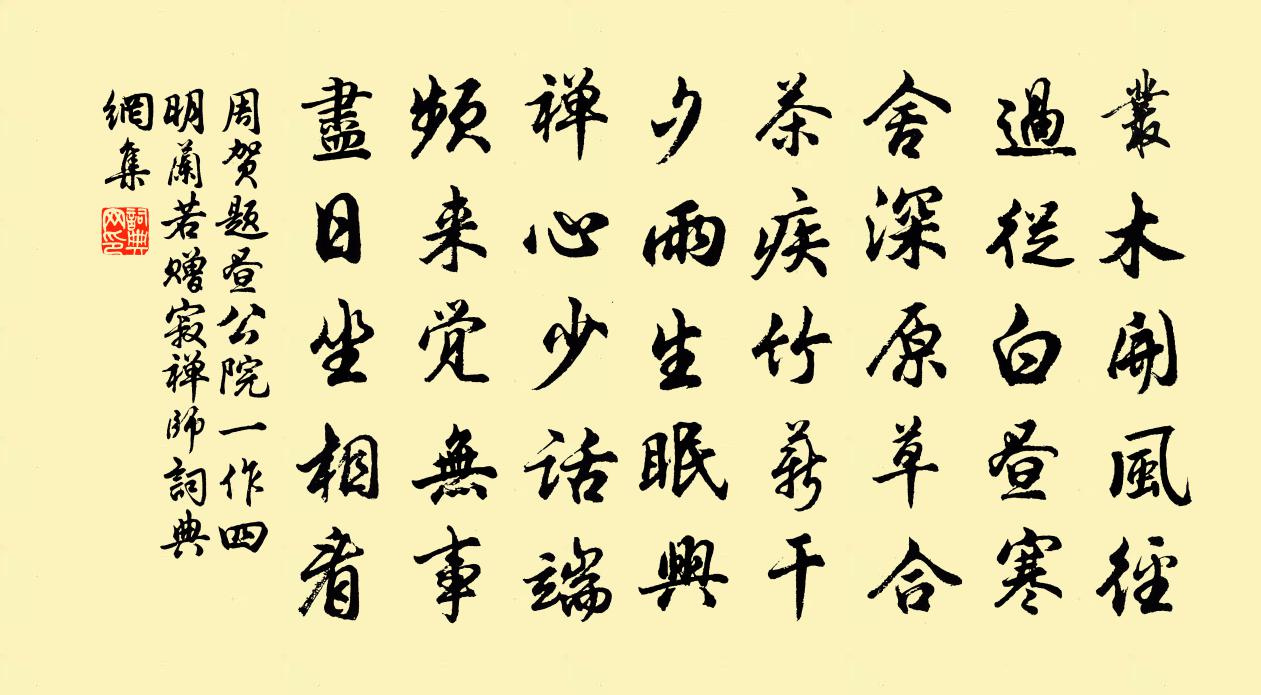 叢木開風徑
過從白昼寒
舍深原草合
茶疾竹薪干
夕雨生眠興
禅心少話端
頻来覚無事
盡日坐相看
周贺题昼公院一作四
明蘭若赠寂禅師詞典
網集
詞典網印